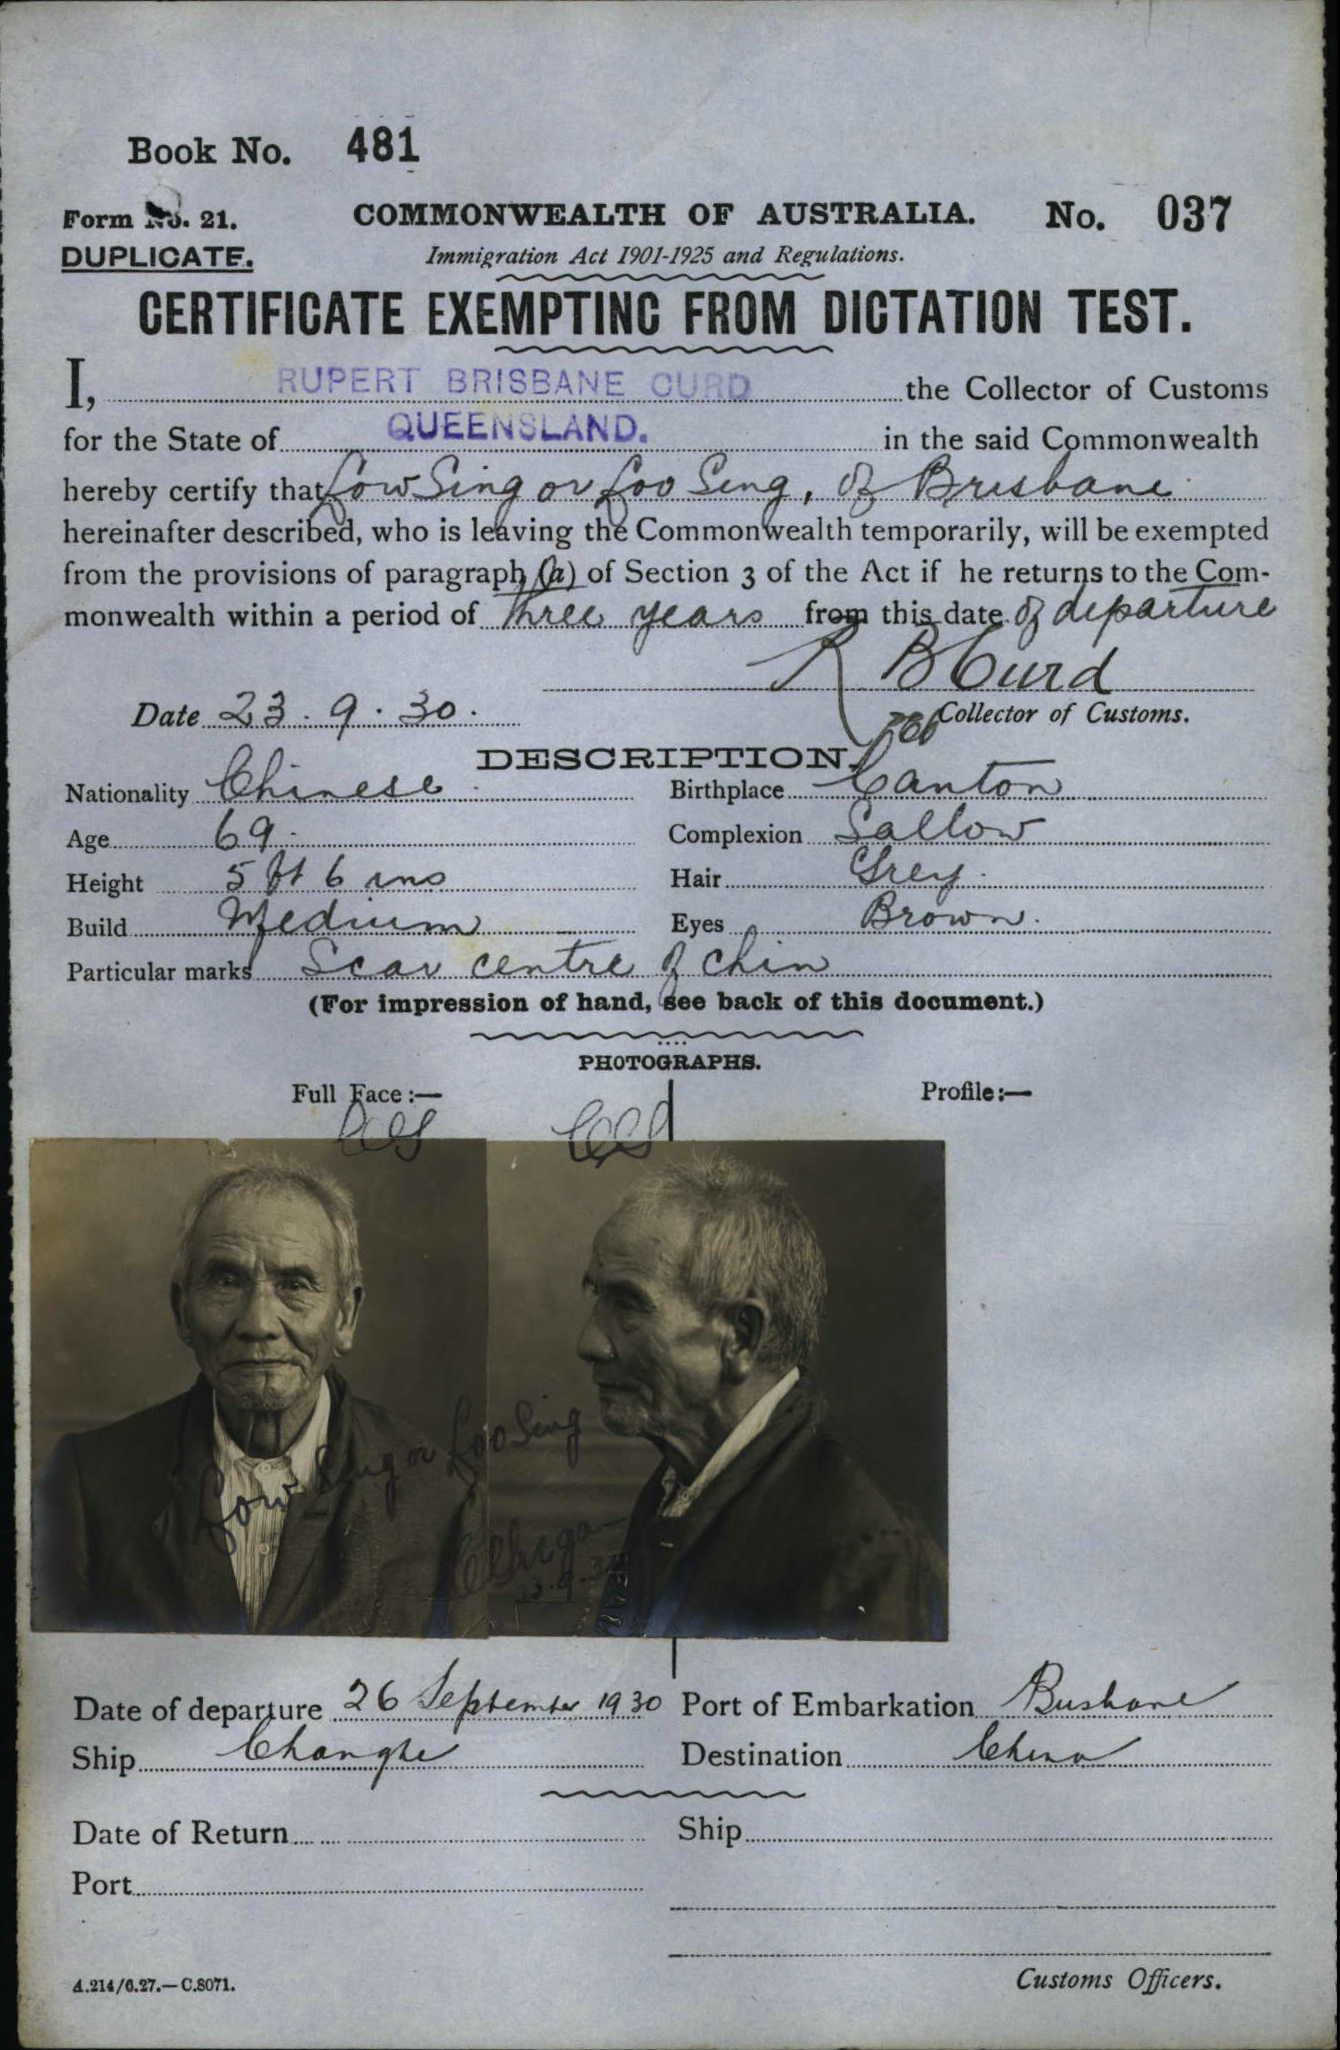 Book No. 481
Form No. 21.
COMMONWEALTH OF AUSTRALIA.
No. 037
DUPLICATE.
Immigration Act 1901-1925 and Regulations.
CERTIFICATE EXEMPTING FROM DICTATION TEST.
I, RUPERT BRISBANE CURD the Collector of Customs
for the State of QUEENSLAND. in the said Commonwealth
hereby certify that Low Sing or Loo Sing, of Brisbane
hereinafter described, who is leaving the Commonwealth temporarily, will be exempted
from the provisions of paragraph (a) of Section 3 of the Act if he returns to the Com-
monwealth within a period of three years from this date of departure
R B Curd
Date 23.9.30.
Collector of Customs.
DESCRIPTION.
Nationality Chinese
Birthplace Canton
Age 69
Complexion Sallow
Height 5 ft 6 ins
Hair Grey.
Build Medium
Eyes Brown.
Particular marks Scar centre of chin
(For impression of hand, see back of this document.)
PHOTOGRAPHS.
Full Face:—
Profile:—
Low Sing or Loo Sing
Date of departure 26 September 1930
Port of Embarkation Brisbane
Ship Changte
Destination China
Date of Return
Ship
Port
A.214/6.27.—C.8071.
Customs Officers.